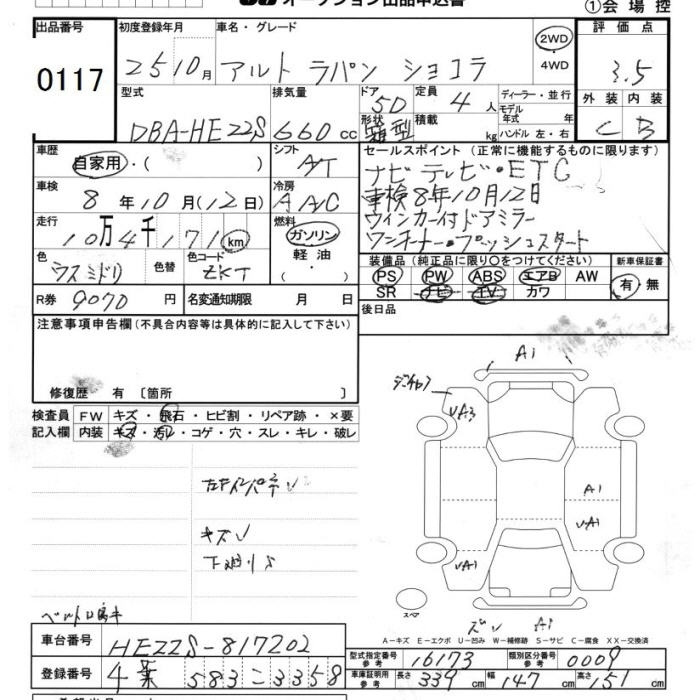 オークション出品申込書
①会場控
出品番号 初度登録年月 車名・グレード 2WD 4WD 評価点
0117 25 10月 アルト ラパン ショコラ 3.5
型式 排気量 ドア 5D 定員 4人 ディーラー・並行 外装 内装
DBA-HE22S 660cc 形状 箱型 積載 kg モデル年式 年式 ハンドル 左・右 C B
車歴 シフト セールスポイント(正常に機能するものに限ります)
自家用・( ) A/T ナビ テレビ・ETC
車検 冷房 車検8年10月12日
8年10月(12日) A A/C ウィンカー付ドアミラー
走行 燃料 ワンオーナー・プッシュスタート
10万4千171km ガソリン
色 色替 色コード 軽油・
ウスミドリ ZKT ( )
装備品(純正品に限り○をつけてください) 新車保証書
PS PW ABS エアB AW 有・無
SR ナビ TV カワ
R券 9070円 名変通知期限 月 日 後日品
注意事項申告欄(不具合内容等は具体的に記入して下さい)
修復歴 有 〔箇所 〕
検査員 FW キズ・飛石・ヒビ割・リペア跡・×要
記入欄 内装 キズ・汚レ・コゲ・穴・スレ・キレ・破レ
A1
A1
A1
キズ
スペア
A1
A-キズ E-エクボ U-凹み W-補修跡 S-サビ C-腐食 XX-交換済
車台番号 HE22S-817202
型式指定番号 参考 16173 類別区分番号 参考 0009
登録番号 583 こ 3358
車庫証明用 参考 長さ 339cm 幅 147cm 高さ 151cm